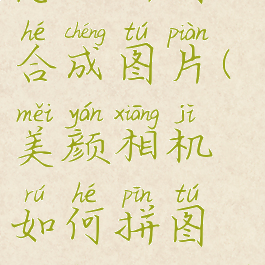 hé chéng tú piàn
合成图片(
měi yán xiāng jī
美颜相机
rú hé pīn tú
如何拼图